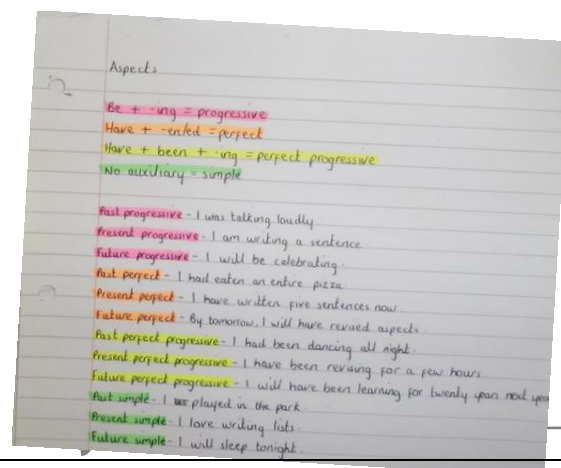 Aspects
Be + -ing = progressive
Have + -en/ed = perfect
Have + been + -ing = perfect progressive
No auxiliary = simple
Past progressive - I was talking loudly
Present progressive - I am writing a sentence.
Future progressive - I will be celebrating.
Past perfect - I had eaten an entire pizza
Present perfect - I have written five sentences now
Future perfect - By tomorrow, I will have revised aspects.
Past perfect progressive - I had been dancing all night.
Present perfect progressive - I have been revising for a few hours
Future perfect progressive - I will have been learning for twenty years next
Past simple - I played in the park
Present simple - I love writing lists.
Future simple - I will sleep tonight.